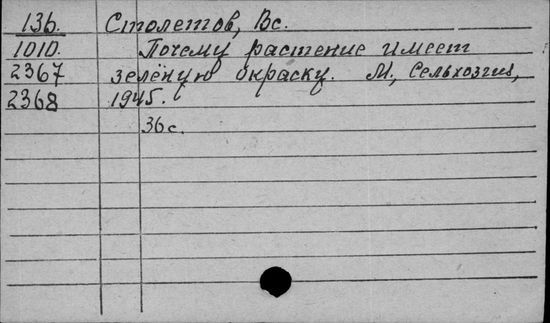 13б. Столетов, Вс.
1010. Почему растение имеет
2367 зелёную окраску. М., Сельхозгиз,
2368 1945.
36с.